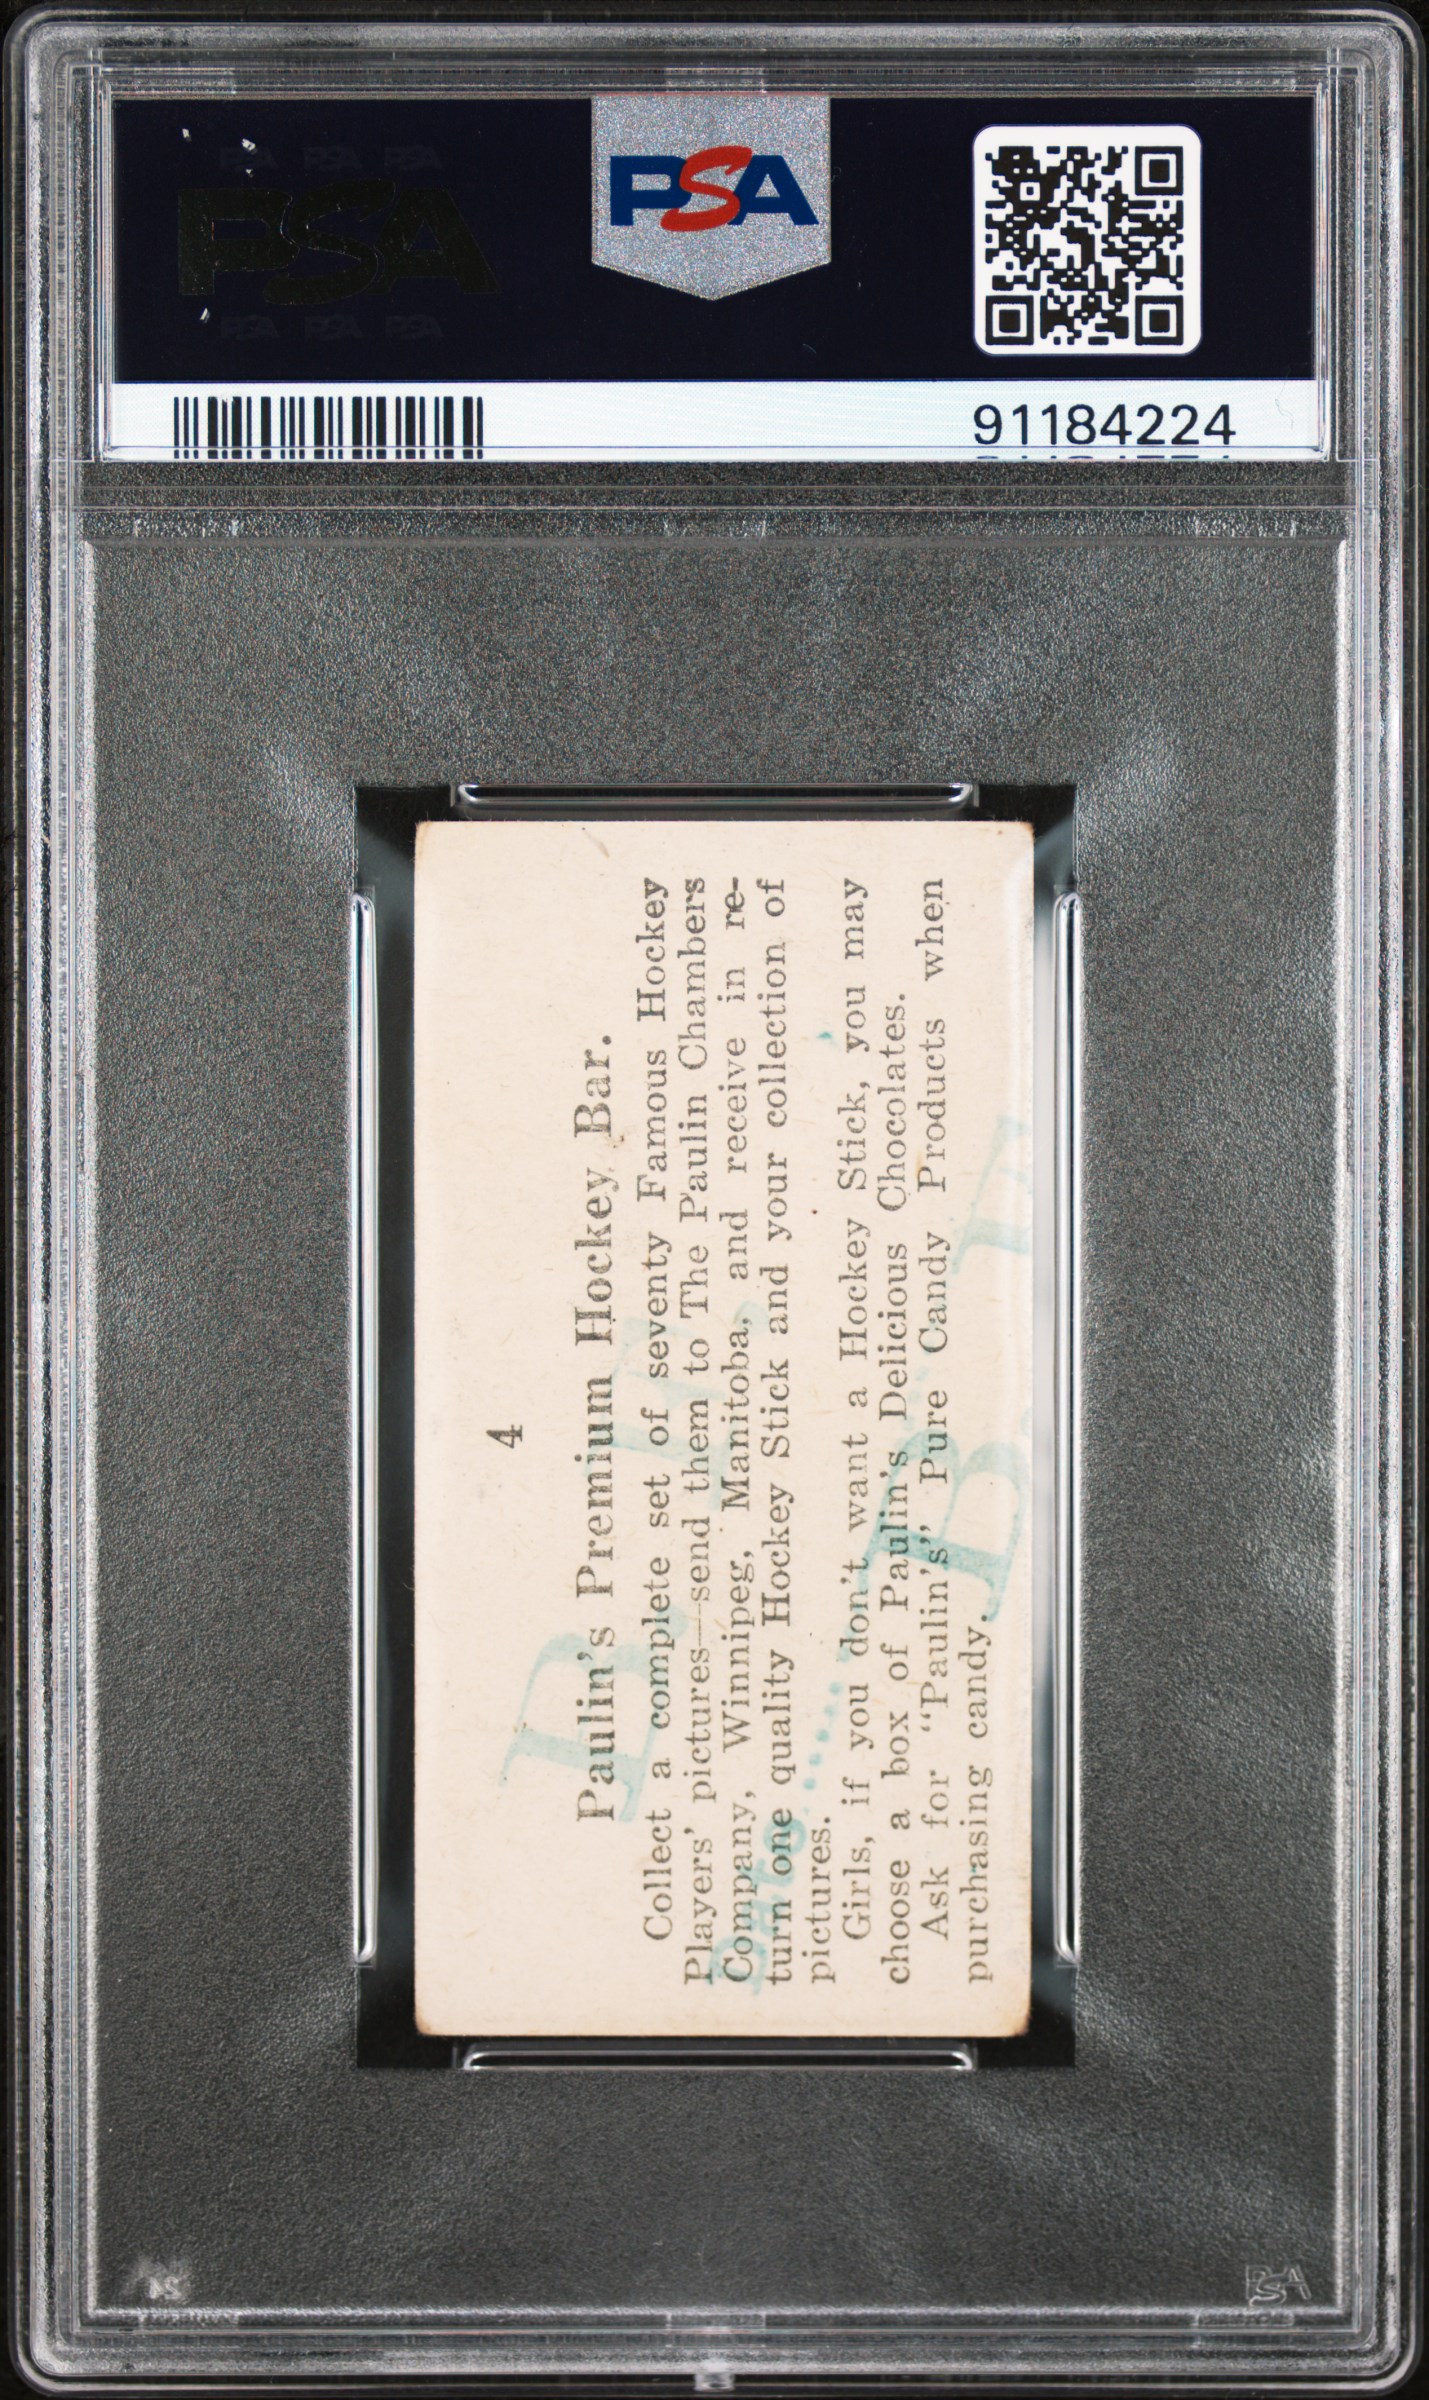 PSA PSA PSA
PSA
PSA PSA PSA
PSA
91184224
4
Paulin's Premium Hockey Bar.
Collect a complete set of seventy Famous Hockey
Players' pictures—send them to The Paulin Chambers
Company, Winnipeg, Manitoba, and receive in re-
turn one quality Hockey Stick and your collection of
pictures.
Girls, if you don't want a Hockey Stick, you may
choose a box of Paulin's Delicious Chocolates.
Ask for "Paulin's" Pure Candy Products when
purchasing candy.
B. F.
Date
B. F.
PSA